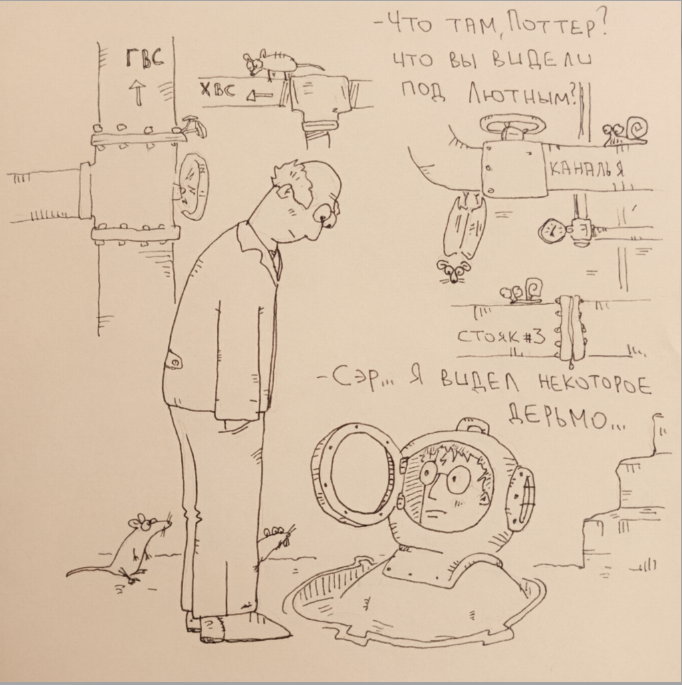 -Что там, Поттер?
Что вы видели
под Лютным?
ГВС
ХВС
КАНАЛЬЯ
СТОЯК #3
-Сэр... я видел некоторое
дерьмо...